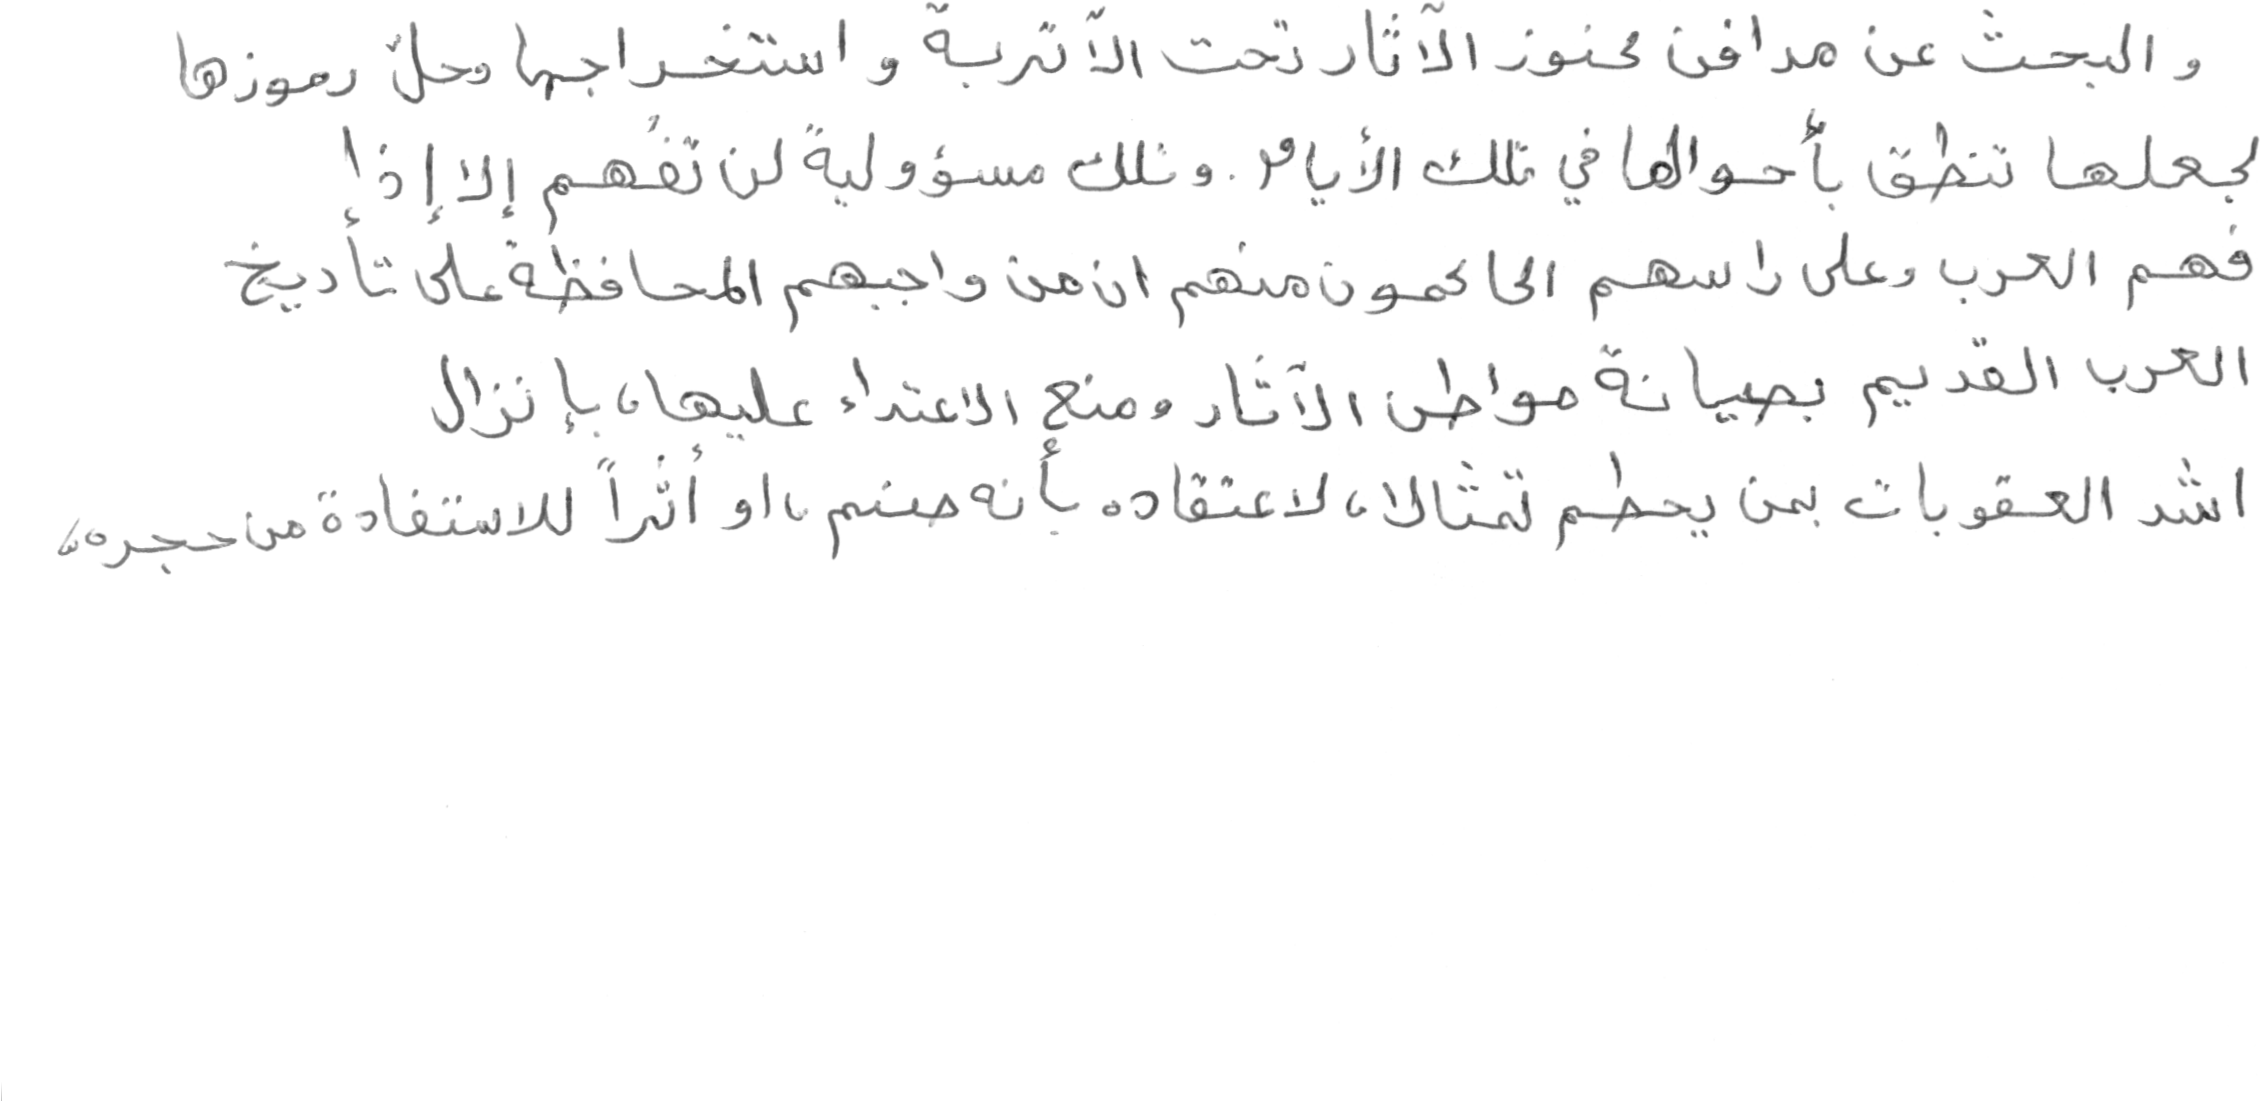 والبحث عن مدافن كنوز الآثار تحت الآتربة واستخراجها وحلّ رموزها
لجعلها تنطق بأحوالها في تلك الأيام. وتلك مسؤولية لن تفُهم إلا إذا
فهم العرب وعلى راسهم الحاكمون منهم ان من واجبهم المحافظة على تأريخ
العرب القديم بصيانة مواطن الآثار ومنع الاعتداء عليها، بإنزال
اشد العقوبات بمن يحطم تمثالا، لاعتقاده بأنه صنم، او أثراً للاستفادة من حجره،